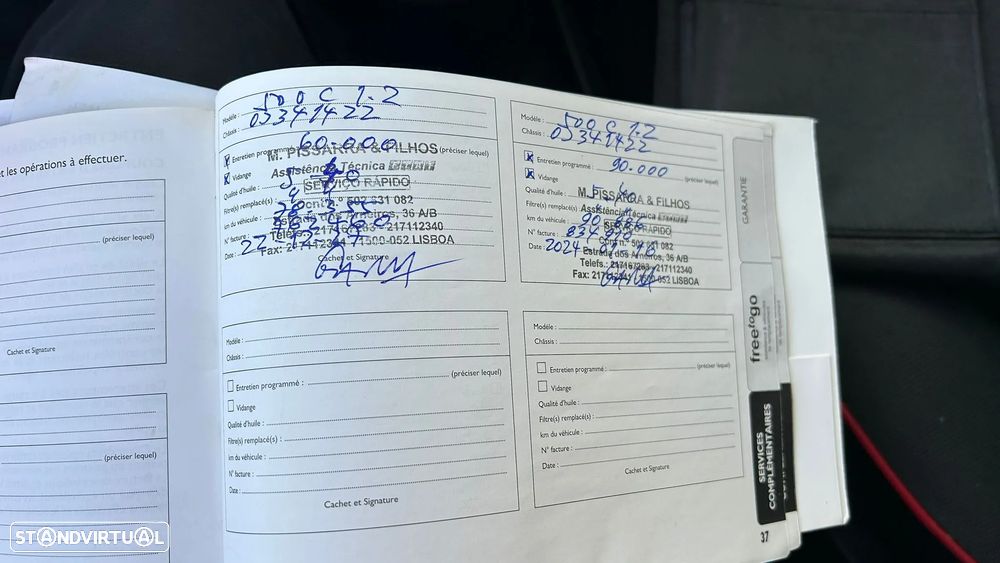 et les opérations à effectuer.
(préciser lequel)
Cachet et Signature
(préciser lequel)
Modèle : 500 C 1.2
Châssis : 05341422
Entretien programmé : 60.000 (préciser lequel)
Vidange
Qualité d'huile :
Filtre(s) remplacé(s) :
km du véhicule :
N° facture :
Date :
Cachet et Signature
M. PISSARRA & FILHOS
Assistência Técnica
SERVIÇO RÁPIDO
Cont. n.º 502 631 082
Estrada dos Arneiros, 36 A/B
Telefs.: 217167283 - 217112340
Fax: 217112341 1500-052 LISBOA
Modèle : 500 C 1.2
Châssis : 05341422
Entretien programmé : 90.000 (préciser lequel)
Vidange
Qualité d'huile :
Filtre(s) remplacé(s) :
km du véhicule :
N° facture :
Date : 2024
M. PISSARRA & FILHOS
Assistência Técnica
SERVIÇO RÁPIDO
Cont. n.º 502 631 082
Estrada dos Arneiros, 36 A/B
Telefs.: 217167283 - 217112340
Fax: 217112341 1500-052 LISBOA
Modèle :
Châssis :
Entretien programmé : (préciser lequel)
Vidange
Qualité d'huile :
Filtre(s) remplacé(s) :
km du véhicule :
N° facture :
Date :
Cachet et Signature
Modèle :
Châssis :
Entretien programmé : (préciser lequel)
Vidange
Qualité d'huile :
Filtre(s) remplacé(s) :
km du véhicule :
N° facture :
Date :
Cachet et Signature
GARANTIE
free to go
SERVICES
COMPLÉMENTAIRES
37
STANDVIRTUAL